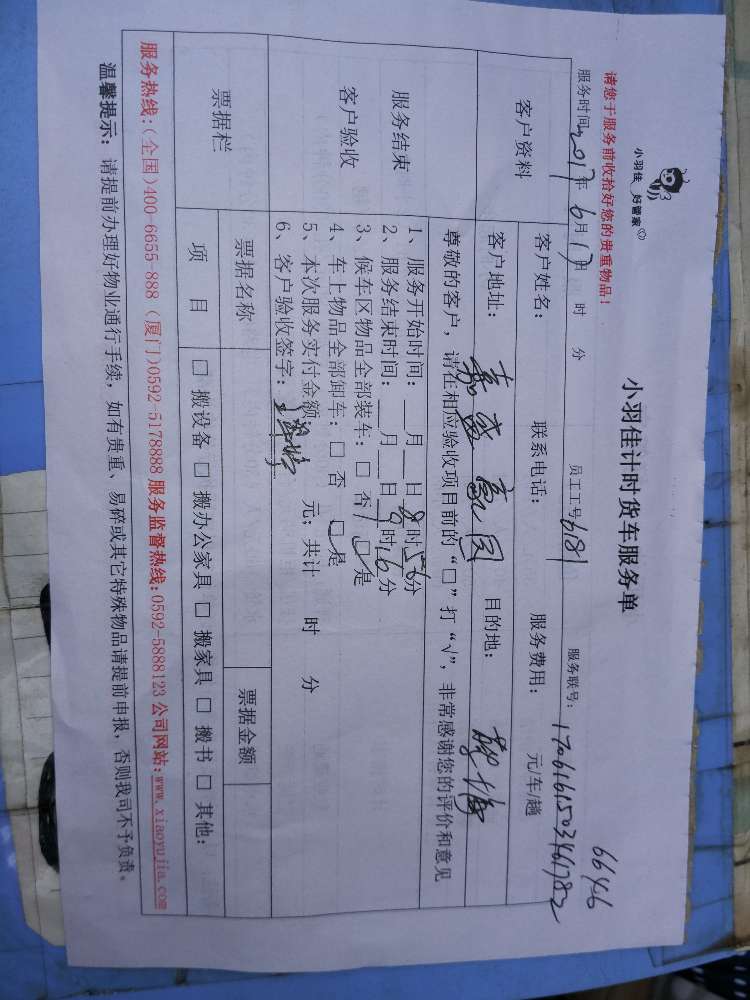 小羽佳 好管家
小羽佳计时货车服务单
66426
请您于服务前收拾好您的贵重物品！
服务时间 2017年 6月 17日 时 分 员工工号 6181 服务联号: 1706161503461782
客户资料 客户姓名: 联系电话: 服务费用: 元/车/趟
客户地址: 嘉盛豪园 目的地:
服务结束 客户验收
尊敬的客户，请在相应验收项目前的“□”打“√”，非常感谢您的评价和意见
1、服务开始时间: __月__日 8时56分
2、服务结束时间: __月__日 9时16分
3、候车区物品全部装车: □ 否 □是
4、车上物品全部卸车: □ 否 □是
5、本次服务实付金额: 元; 共计 时 分
6、客户验收签字:
票据栏 票据名称 票据金额
项 目 □ 搬设备 □ 搬办公家具 □ 搬家具 □ 搬书 □ 其他:
服务热线:(全国)400-6655-888 (厦门)0592-5178888 服务监督热线:0592-5888123 公司网站:www.xiaoyujia.com
温馨提示: 请提前办理好物业通行手续，如有贵重、易碎或其它特殊物品请提前申报，否则我司不予负责。